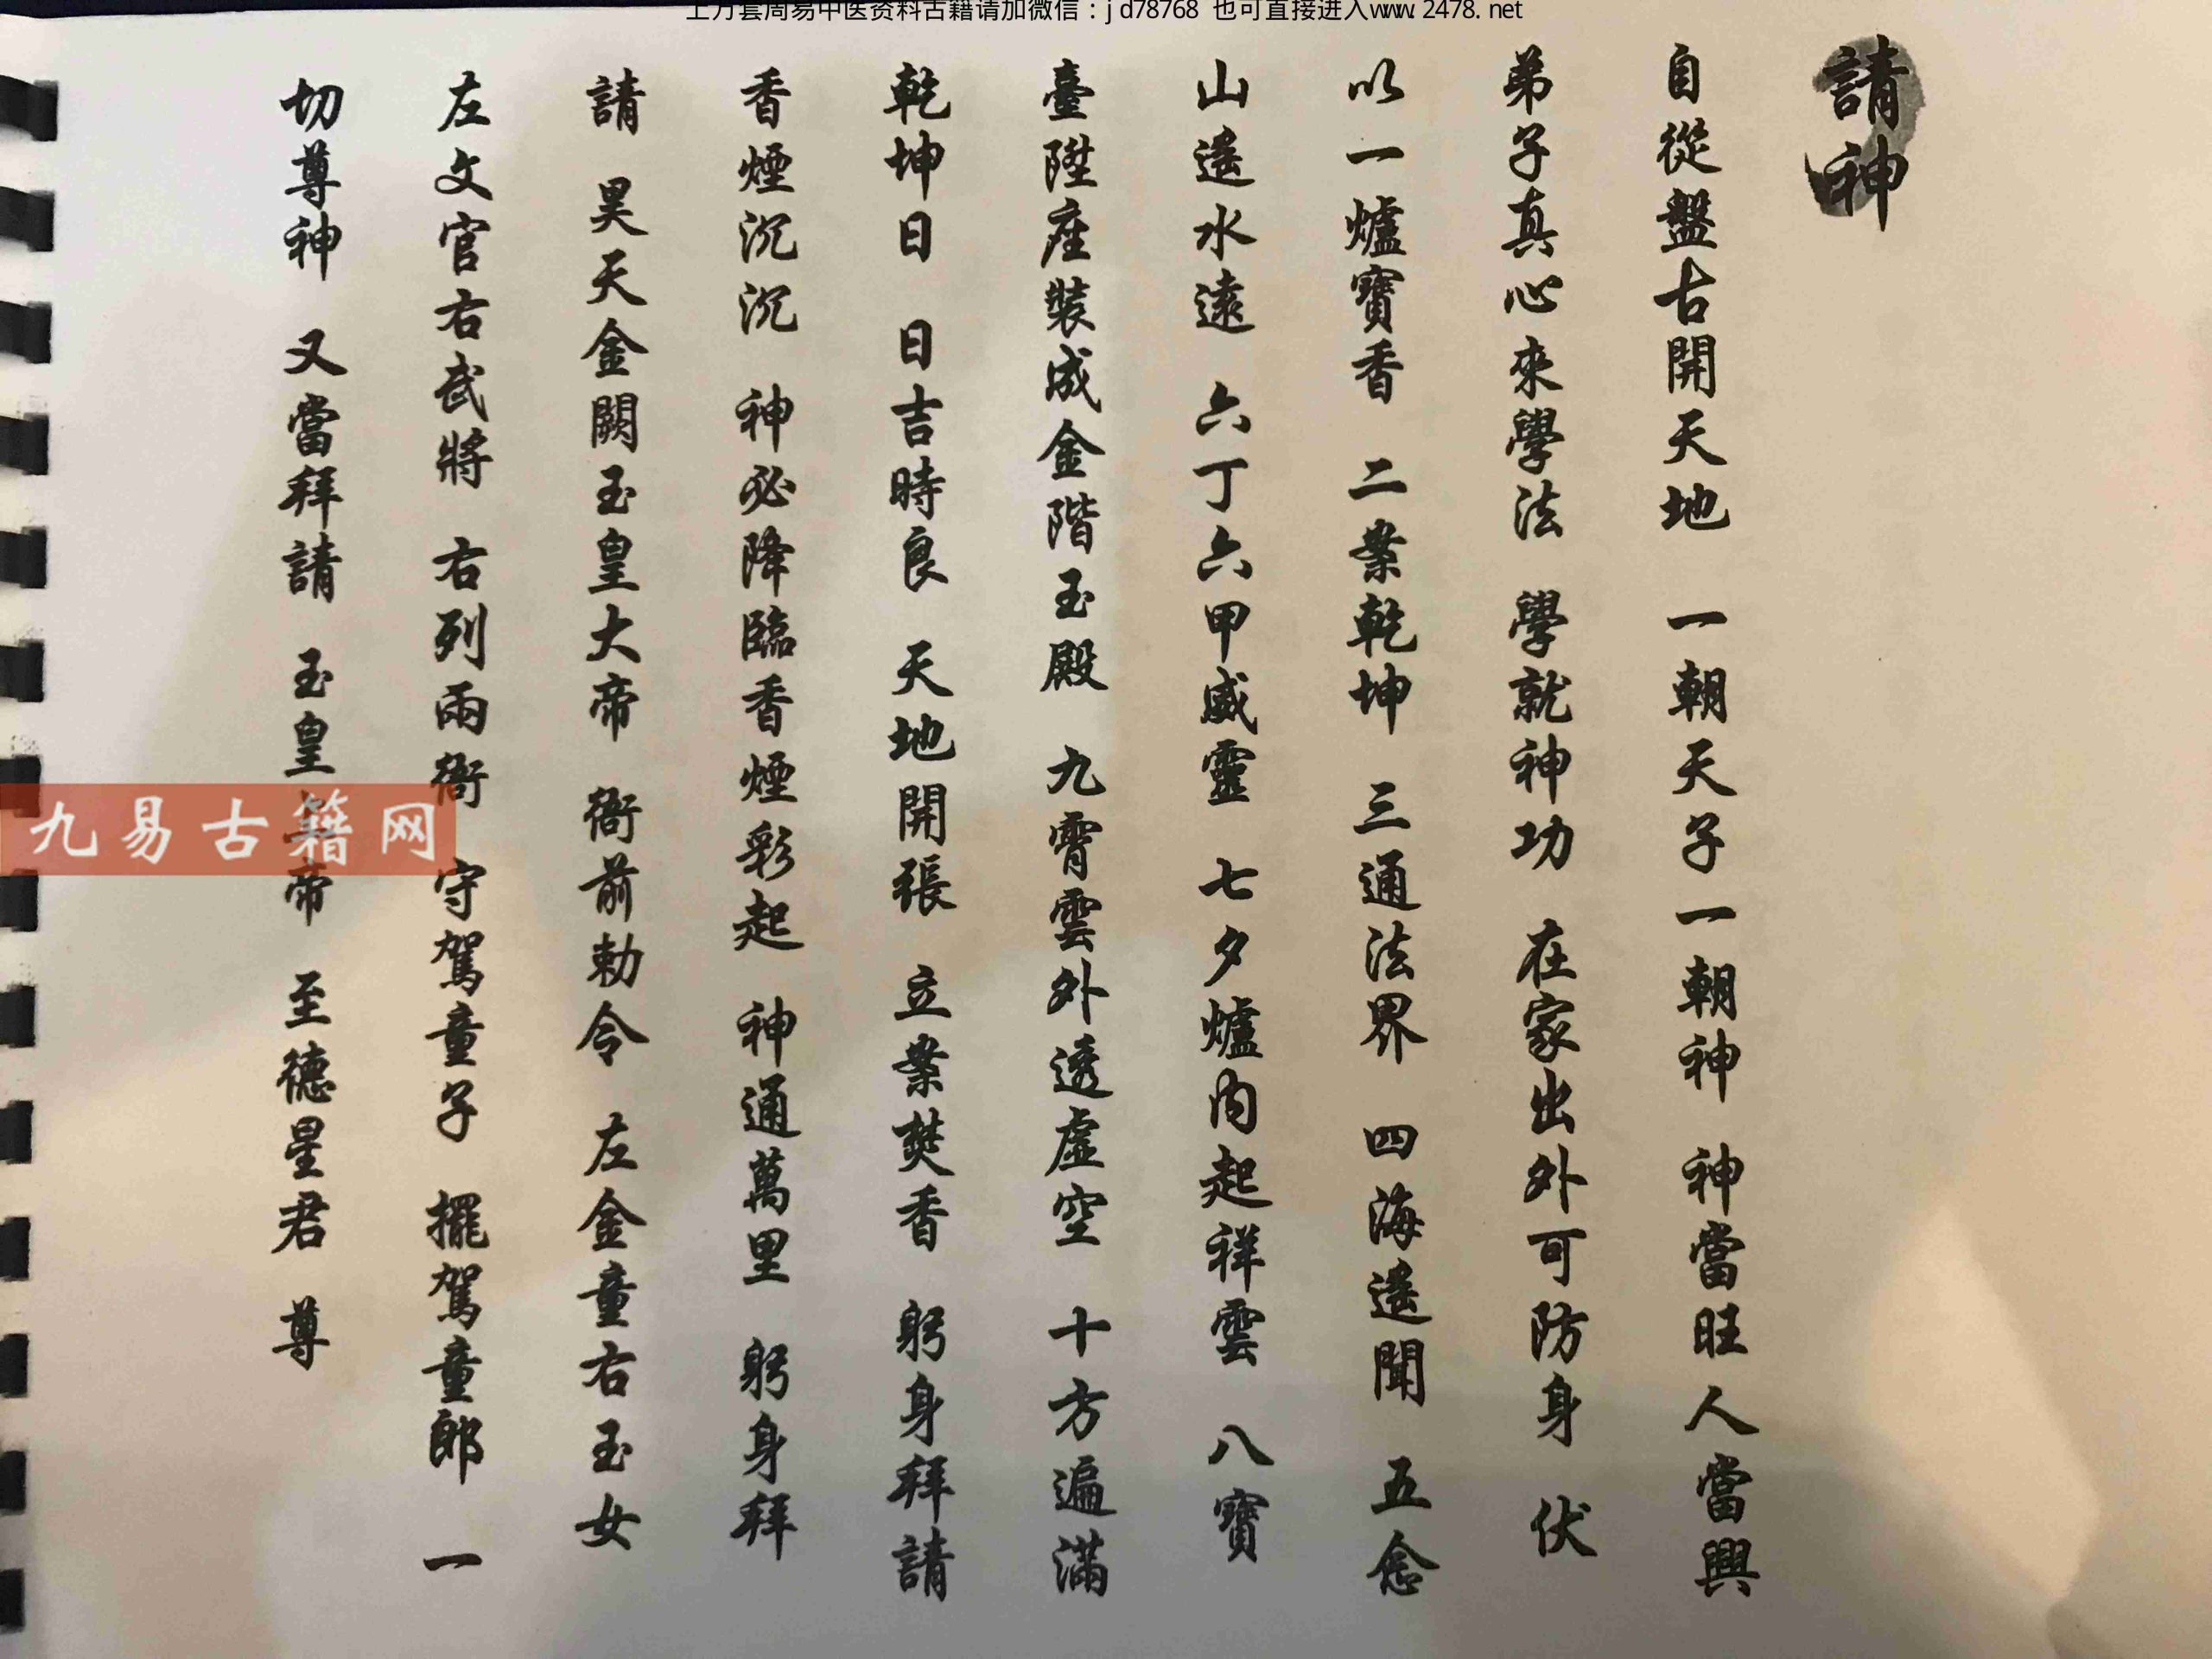 上万套周易中医资料古籍请加微信：jd78768 也可直接进入www.2478.net
請神
自從盤古開天地 一朝天子一朝神 神當旺人當興
弟子真心來學法 學就神功 在家出外可防身 伏
以一爐寶香 二業乾坤 三通法界 四海遙聞 五念
山遙水遠 六丁六甲威靈 七夕爐內起祥雲 八寶
臺陞座裝成金階玉殿 九霄雲外透虛空 十方遍滿
乾坤日 日吉時良 天地開張 立業焚香 躬身拜請
香煙沉沉 神必降臨香煙彩起 神通萬里 躬身拜
請 昊天金闕玉皇大帝 衙前勅令 左金童右玉女
左文官右武將 右列兩衙 守駕童子 擺駕童郎 一
切尊神 又當拜請 玉皇 帝 至德星君 尊
九易古籍网